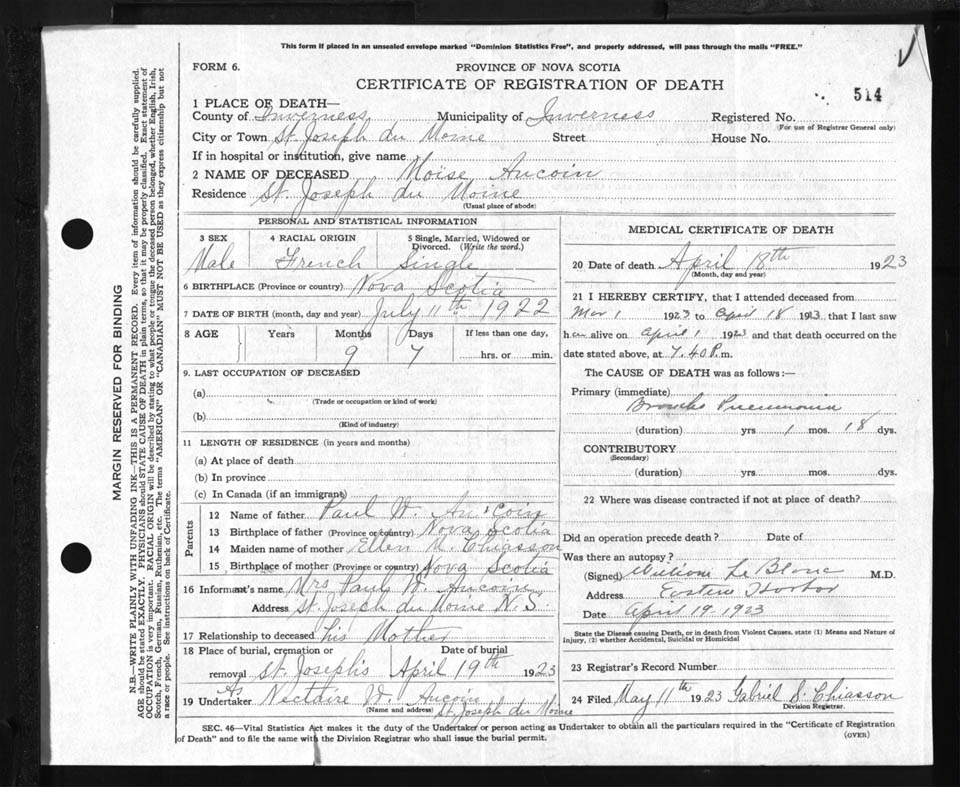 This form if placed in an unsealed envelope marked "Dominion Statistics Free", and properly addressed, will pass through the mails "FREE."
FORM 6.
PROVINCE OF NOVA SCOTIA
CERTIFICATE OF REGISTRATION OF DEATH
514
1 PLACE OF DEATH—
County of Inverness Municipality of Inverness Registered No.
(For use of Registrar General only)
City or Town St. Joseph du Moine Street House No.
If in hospital or institution, give name
2 NAME OF DECEASED Moise Aucoin
Residence St. Joseph du Moine
(Usual place of abode)
PERSONAL AND STATISTICAL INFORMATION
3 SEX 4 RACIAL ORIGIN 5 Single, Married, Widowed or Divorced. (Write the word.)
Male French Single
6 BIRTHPLACE (Province or country) Nova Scotia
7 DATE OF BIRTH (month, day and year) July 11th 1922
8 AGE Years Months Days If less than one day,
9 7 hrs. or min.
9. LAST OCCUPATION OF DECEASED
(a)
(Trade or occupation or kind of work)
(b)
(Kind of industry)
11 LENGTH OF RESIDENCE (in years and months)
(a) At place of death
(b) In province
(c) In Canada (if an immigrant)
Parents
12 Name of father Paul W. Aucoin
13 Birthplace of father (Province or country) Nova Scotia
14 Maiden name of mother Ellen M. Chiasson
15 Birthplace of mother (Province or country) Nova Scotia
16 Informant's name Mrs Paul W. Aucoin
Address St. Joseph du Moine N.S.
17 Relationship to deceased his Mother
18 Place of burial, cremation or removal Date of burial
St. Joseph's April 19th 1923
As
19 Undertaker Nectaire W. Aucoin
(Name and address) St. Joseph du Moine
MEDICAL CERTIFICATE OF DEATH
20 Date of death April 18th 1923
(Month, day and year)
21 I HEREBY CERTIFY, that I attended deceased from
Mar 1 1923 to April 18 1923 that I last saw
h alive on April 1 1923 and that death occurred on the
date stated above, at 7.40 P.m.
The CAUSE OF DEATH was as follows:—
Primary (immediate)
Broncho Pneumonia
(duration) yrs 1 mos. 18 dys.
CONTRIBUTORY
(Secondary)
(duration) yrs. mos. dys.
22 Where was disease contracted if not at place of death?
Did an operation precede death? Date of
Was there an autopsy?
(Signed) William Le Blanc M.D.
Address Eastern Harbor
Date April 19-1923
State the Disease causing Death, or in death from Violent Causes, state (1) Means and Nature of
Injury, (2) whether Accidental, Suicidal or Homicidal
23 Registrar's Record Number
24 Filed May 11th 1923 Gabriel S. Chiasson
Division Registrar.
SEC. 46—Vital Statistics Act makes it the duty of the Undertaker or person acting as Undertaker to obtain all the particulars required in the "Certificate of Registration
of Death" and to file the same with the Division Registrar who shall issue the burial permit.
(OVER)
MARGIN RESERVED FOR BINDING
N.B.—WRITE PLAINLY WITH UNFADING INK—THIS IS A PERMANENT RECORD. Every item of information should be carefully supplied.
AGE should be stated EXACTLY. PHYSICIANS should STATE CAUSE OF DEATH in plain terms, so that it may be properly classified. Exact statement of
OCCUPATION is very important. RACIAL ORIGIN will be described by stating to what people or tongue the deceased person belonged, whether English, Irish,
Scotch, French, German, Russian, Ruthenian, etc. The terms "AMERICAN" or "CANADIAN" MUST NOT BE USED as they express citizenship but not
a race or people. See instructions on back of Certificate.